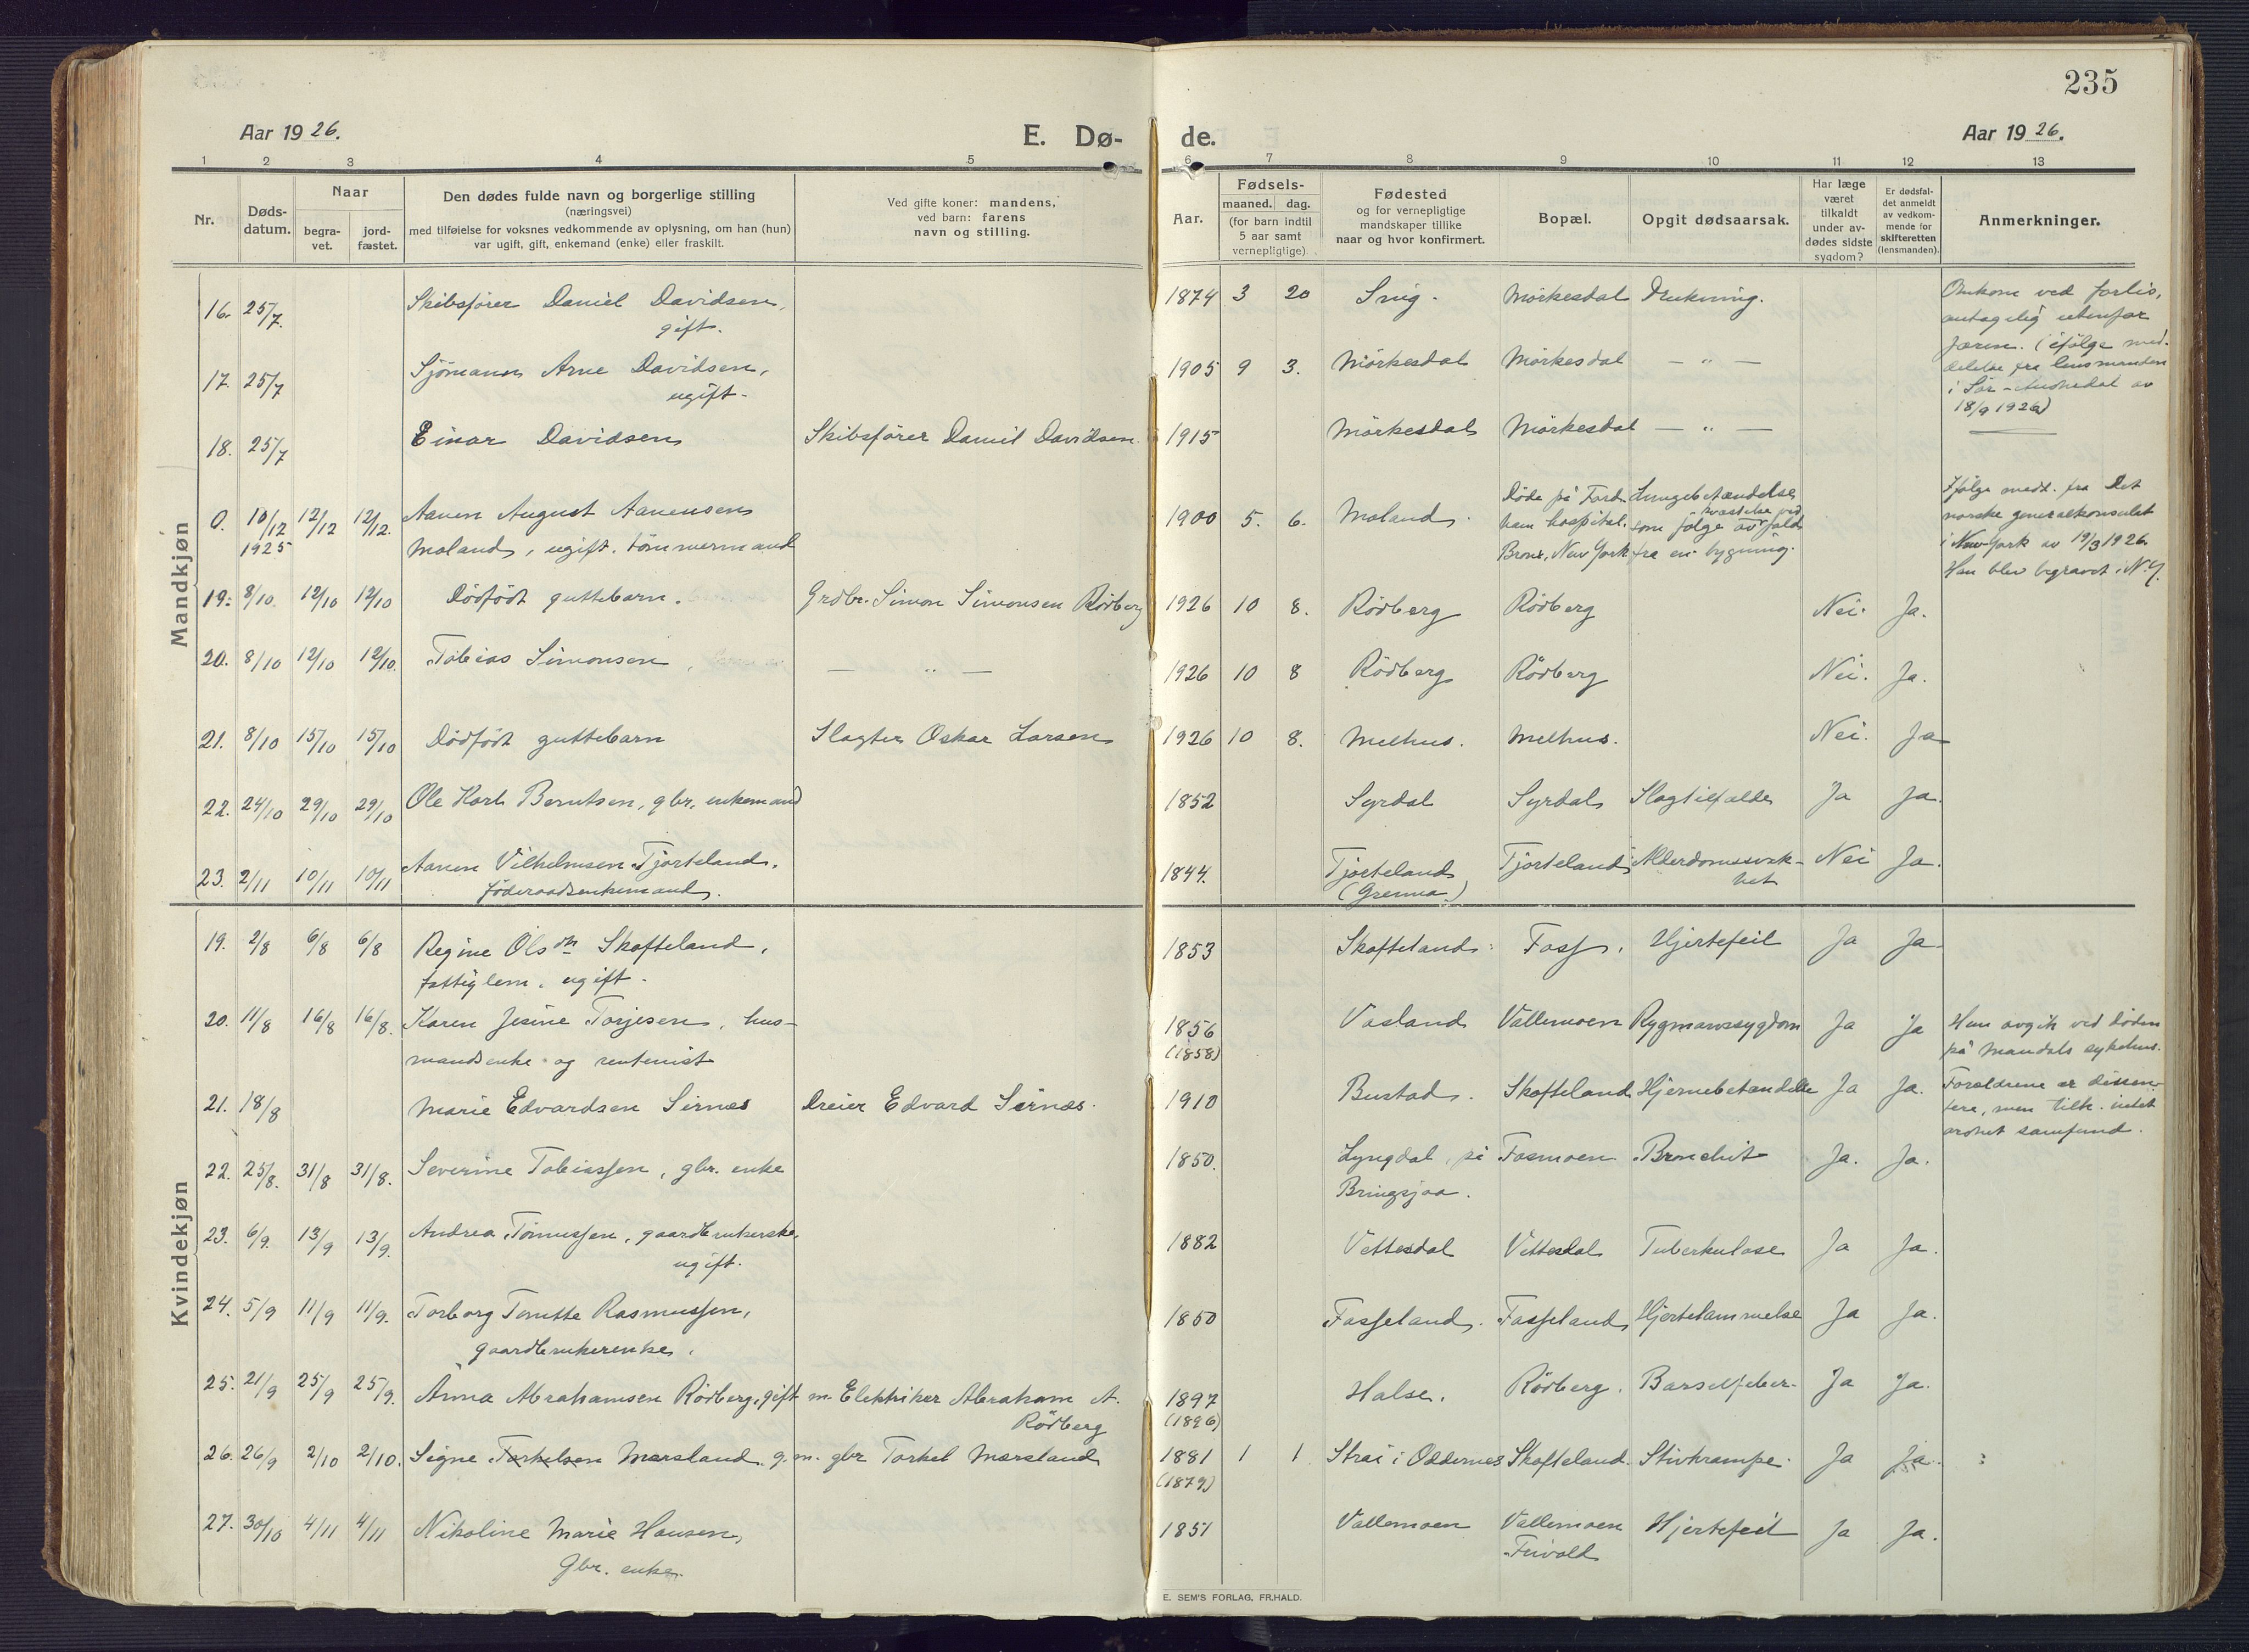 235
Aar 1926.
E. Dø-
de.
Aar 1926.
1 2 3 4 5 6 7 8 9 10 11 12 13
Nr.
Døds-
datum.
Naar
begra-
vet.
jord-
fæstet.
Den dødes fulde navn og borgerlige stilling
(næringsvei)
med tilføielse for voksnes vedkommende av oplysning, om han (hun)
var ugift, gift, enkemand (enke) eller fraskilt.
Ved gifte koner: mandens,
ved barn: farens
navn og stilling.
Aar.
Fødsels-
maaned. dag.
(for barn indtil
5 aar samt
vernepligtige).
Fødested
og for vernepligtige
mandskaper tillike
naar og hvor konfirmert.
Bopæl.
Opgit dødsaarsak.
Har læge
været
tilkaldt
under av-
dødes sidste
sygdom?
Er dødsfal-
det anmeldt
av vedkom-
mende for
skifteretten
(lensmanden).
Anmerkninger.
Mandkjøn
16. 25/7. Skibsfører Daniel Davidsen, 1874 3 20 Snig. Mörkesdal Drukning.
gift.
Omkom ved forlis,
antagelig utenfor
Jæren. (ifølge med-
delelse fra lensmanden
i Sör-Audnedal av
18/9 1926)
17. 25/7 Sjömann Arne Davidsen, 1905 9 3. Mörkesdal Mörkesdal — " —
ugift.
18. 25/7 Einar Davidsen Skibsfører Daniel Davidsen. 1915 Mörkesdal Mörkesdal — " —
0. 10/12 1925 12/12 12/12. Aanen August Aanensen 1900 5. 6. Moland.
Moland, ugift. tömmermand
Döde på Ford-
ham hospital.
Bronx, New York
Lungebetændelse
som følge av kvæstelse ved fald
fra en bygning.
Ifølge medd. fra Det
norske generalkonsulat
i New York av 19/3 1926.
Han blev begravet i N.Y.
19. 8/10. 12/10 12/10 Dödfödt guttebarn. Grdbr. Simon Simonsen Rödberg 1926 10 8. Rödberg Rödberg Nei. Ja.
20. 8/10 12/10 12/10. Tobias Simonsen — " — 1926 10 8 Rödberg Rödberg Nei. Ja.
21. 8/10 15/10 15/10 Dödfödt guttebarn Slagter Oskar Larsen 1926 10 8. Melhus. Melhus. Nei. Ja
22. 24/10 29/10 29/10 Ole Karl Berntsen, gbr. enkemand 1852 Syrdal Syrdal Slagtilfælde Ja Ja.
23. 2/11 10/11 10/11 Aanen Vilhelmsen Tjorteland. 1844. Tjorteland Tjorteland Alderdomssvak- Nei Ja.
föderaadsenkemand. (Grenna) het
Kvindekjøn
19. 2/8 6/8 6/8 Regine Olsdtr Skofteland, 1853 Skofteland. Foss. Hjertefeil Ja Ja.
fattiglem. ugift.
20. 11/8 16/8 16/8. Karen Jesine Torjesen, hus- 1856 Vasland Vallemoen Rygmarvssygdom Ja Ja
mandsenke og rentenist (1858)
Hun avgik ved döden
på Mandals sykehus.
21. 18/8 Marie Edvardsen Sirnes Dreier Edvard Sirnes. 1910 Bustad. Skofteland Hjernebetændelse Ja Ja.
Forældrene er dissen-
tere, men tilh. intet
ordnet samfund.
22. 25/8. 31/8 31/8. Severine Tobiassen, gbr. enke 1850. Lyngdal, på Fosmoen Bronchit Ja. Ja.
Bringsjaa.
23. 6/9. 13/9 13/9. Andrea Tönnessen, gaardbrukerske, 1882 Vettesdal Vettesdal Tuberkulose Ja Ja.
ugift.
24. 5/9 11/9 11/9. Torborg Tomitte Rasmussen, 1850 Fasseland. Fasseland Hjertelammelse Ja Ja.
gaardbrukerenke.
25. 21/9 25/9 25/9. Anna Abrahamsen Rödberg, gift m. Elektriker Abraham A. 1897 Halse. Rödberg. Barselfeber. Ja Ja.
Rödberg (1896)
26. 26/9 2/10 2/10. Signe Torkelsen Marsland g. m. gbr Torkel Marsland 1881 1 1 Strai i Oddernes Skofteland. Stivkrampe. Ja Ja.
(1879)
27. 30/10 4/11 4/11 Nikoline Marie Hansen, 1851 Vallemoen Vallemoen Hjertefeil Ja Ja.
Gbr. enke. Frivold
E. SEM'S FORLAG, FR.HALD.